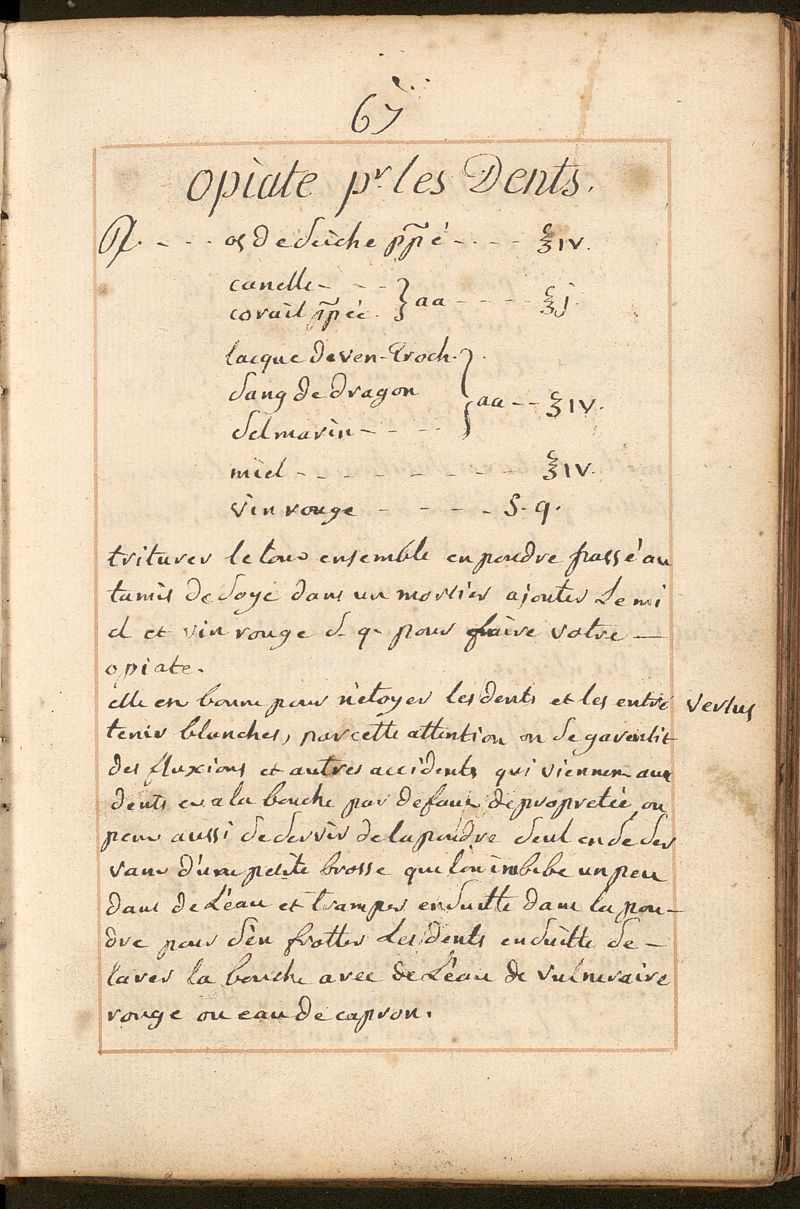 67
opiate pr. les Dents.
℞. - - - os de sèiche ppé - - - - ℥ IV.
canelle - - - -
corail ppéé. } aa - - - - ℥ j.
lacque de ven. Troch.
sang de dragon } aa - - - ℥ IV.
sel marin - - - -
miel - - - - - - - - ℥ IV.
vin rouge - - - - - S. q.
triturer le tous ensemble en poudre passé au
tamis de soye dans un mortier ajouter Le mi
el et vin rouge S. q. pour faire votre —
opiate.
elle en bonne pour nétoyer les dents et les entre vertus
tenir blanches, par cette attention on se garentit
des fluxions et autres accidents qui viennent aux
dents et a la bouche par defaut de propretée, on
peut aussi se servir de la poudre seul en se ser
vant d'une petite brosse que l'on imbibe un peu
dans de L'eau et tramper ensuitte dans la pou-
dre pour s'en frotter Les dents ensuitte se -
laver la bouche avec de L'eau de vulneraire
rouge ou eau de capron.